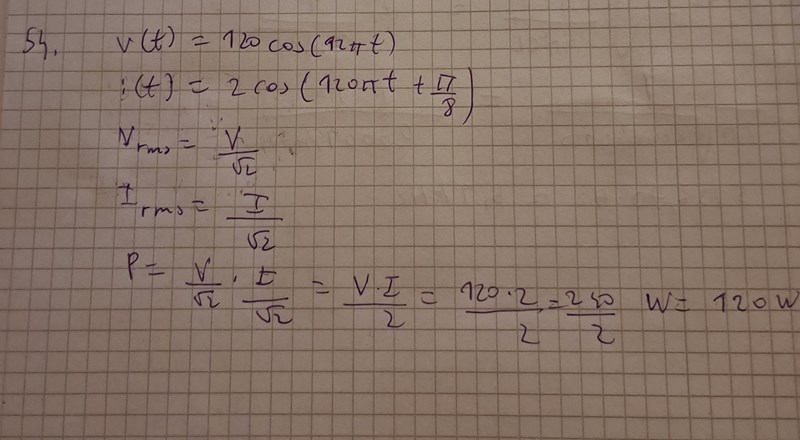 54. v(t) = 120 cos(120πt)
i(t) = 2 cos(120πt + π/8)
Vrms = V/√2
Irms = I/√2
P = V/√2 · I/√2 = V·I/2 = 120·2/2 = 240/2 W = 120 W